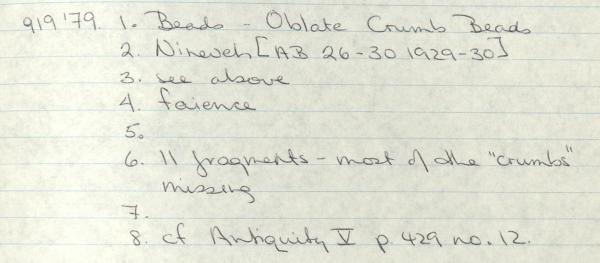 919'79. 1. Beads - Oblate Crumb Beads
2. Nineveh [AB 26-30 1929-30]
3. see above
4. faience
5.
6. 11 fragments - most of the "crumbs"
missing
7.
8. cf Antiquity V p. 429 no. 12.